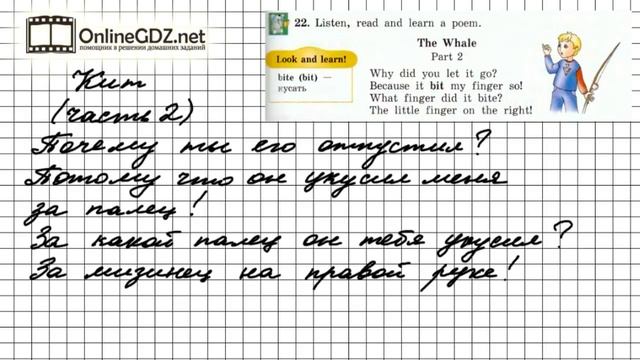 OnlineGDZ.net
помощник в решении домашних заданий
22. Listen, read and learn a poem.
Look and learn!
bite (bit) —
кусать
The Whale
Part 2
Why did you let it go?
Because it bit my finger so!
What finger did it bite?
The little finger on the right!
Кит
(часть 2)
Почему ты его отпустил?
Потому что он укусил меня
за палец!
За какой палец он тебя укусил?
За мизинец на правой руке!